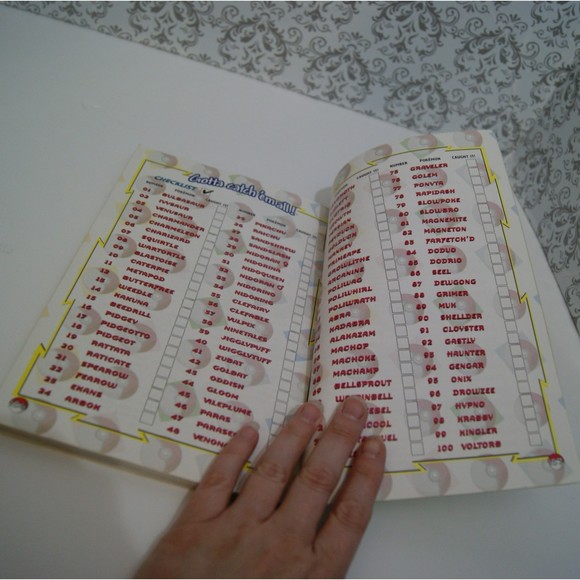 Gotta catch 'em all!
CHECKLIST
01 BULBASAUR
02 IVYSAUR
03 VENUSAUR
04 CHARMANDER
05 CHARMELEON
06 CHARIZARD
07 SQUIRTLE
08 WARTORTLE
09 BLASTOISE
10 CATERPIE
11 METAPOD
12 BUTTERFREE
13 WEEDLE
14 KAKUNA
15 BEEDRILL
16 PIDGEY
17 PIDGEOTTO
18 PIDGEOT
19 RATTATA
20 RATICATE
21 SPEAROW
22 FEAROW
23 EKANS
24 ARBOK
SANDSHREW
SANDSLASH
NIDORAN
NIDORINA
NIDOQUEEN
NIDORAN
NIDORINO
NIDOKING
CLEFAIRY
CLEFABLE
VULPIX
NINETALES
JIGGLYPUFF
40 WIGGLYTUFF
41 ZUBAT
42 GOLBAT
43 ODDISH
44 GLOOM
45 VILEPLUME
46 PARAS
47 PARASE
48 VENON
POLIWAG
POLIWHIRL
POLIWRATH
ABRA
KADABRA
ALAKAZAM
MACHOP
MACHOKE
MACHAMP
BELLSPROUT
NUMBER POKÉMON CAUGHT IT!
75 GRAVELER
76 GOLEM
77 PONYTA
78 RAPIDASH
79 SLOWPOKE
80 SLOWBRO
81 MAGNEMITE
82 MAGNETON
83 FARFETCH'D
84 DODUO
85 DODRIO
86 SEEL
87 DEWGONG
88 GRIMER
89 MUK
90 SHELLDER
91 CLOYSTER
92 GASTLY
93 HAUNTER
94 GENGAR
95 ONIX
96 DROWZEE
97 HYPNO
98 KRABBY
99 KINGLER
100 VOLTORB